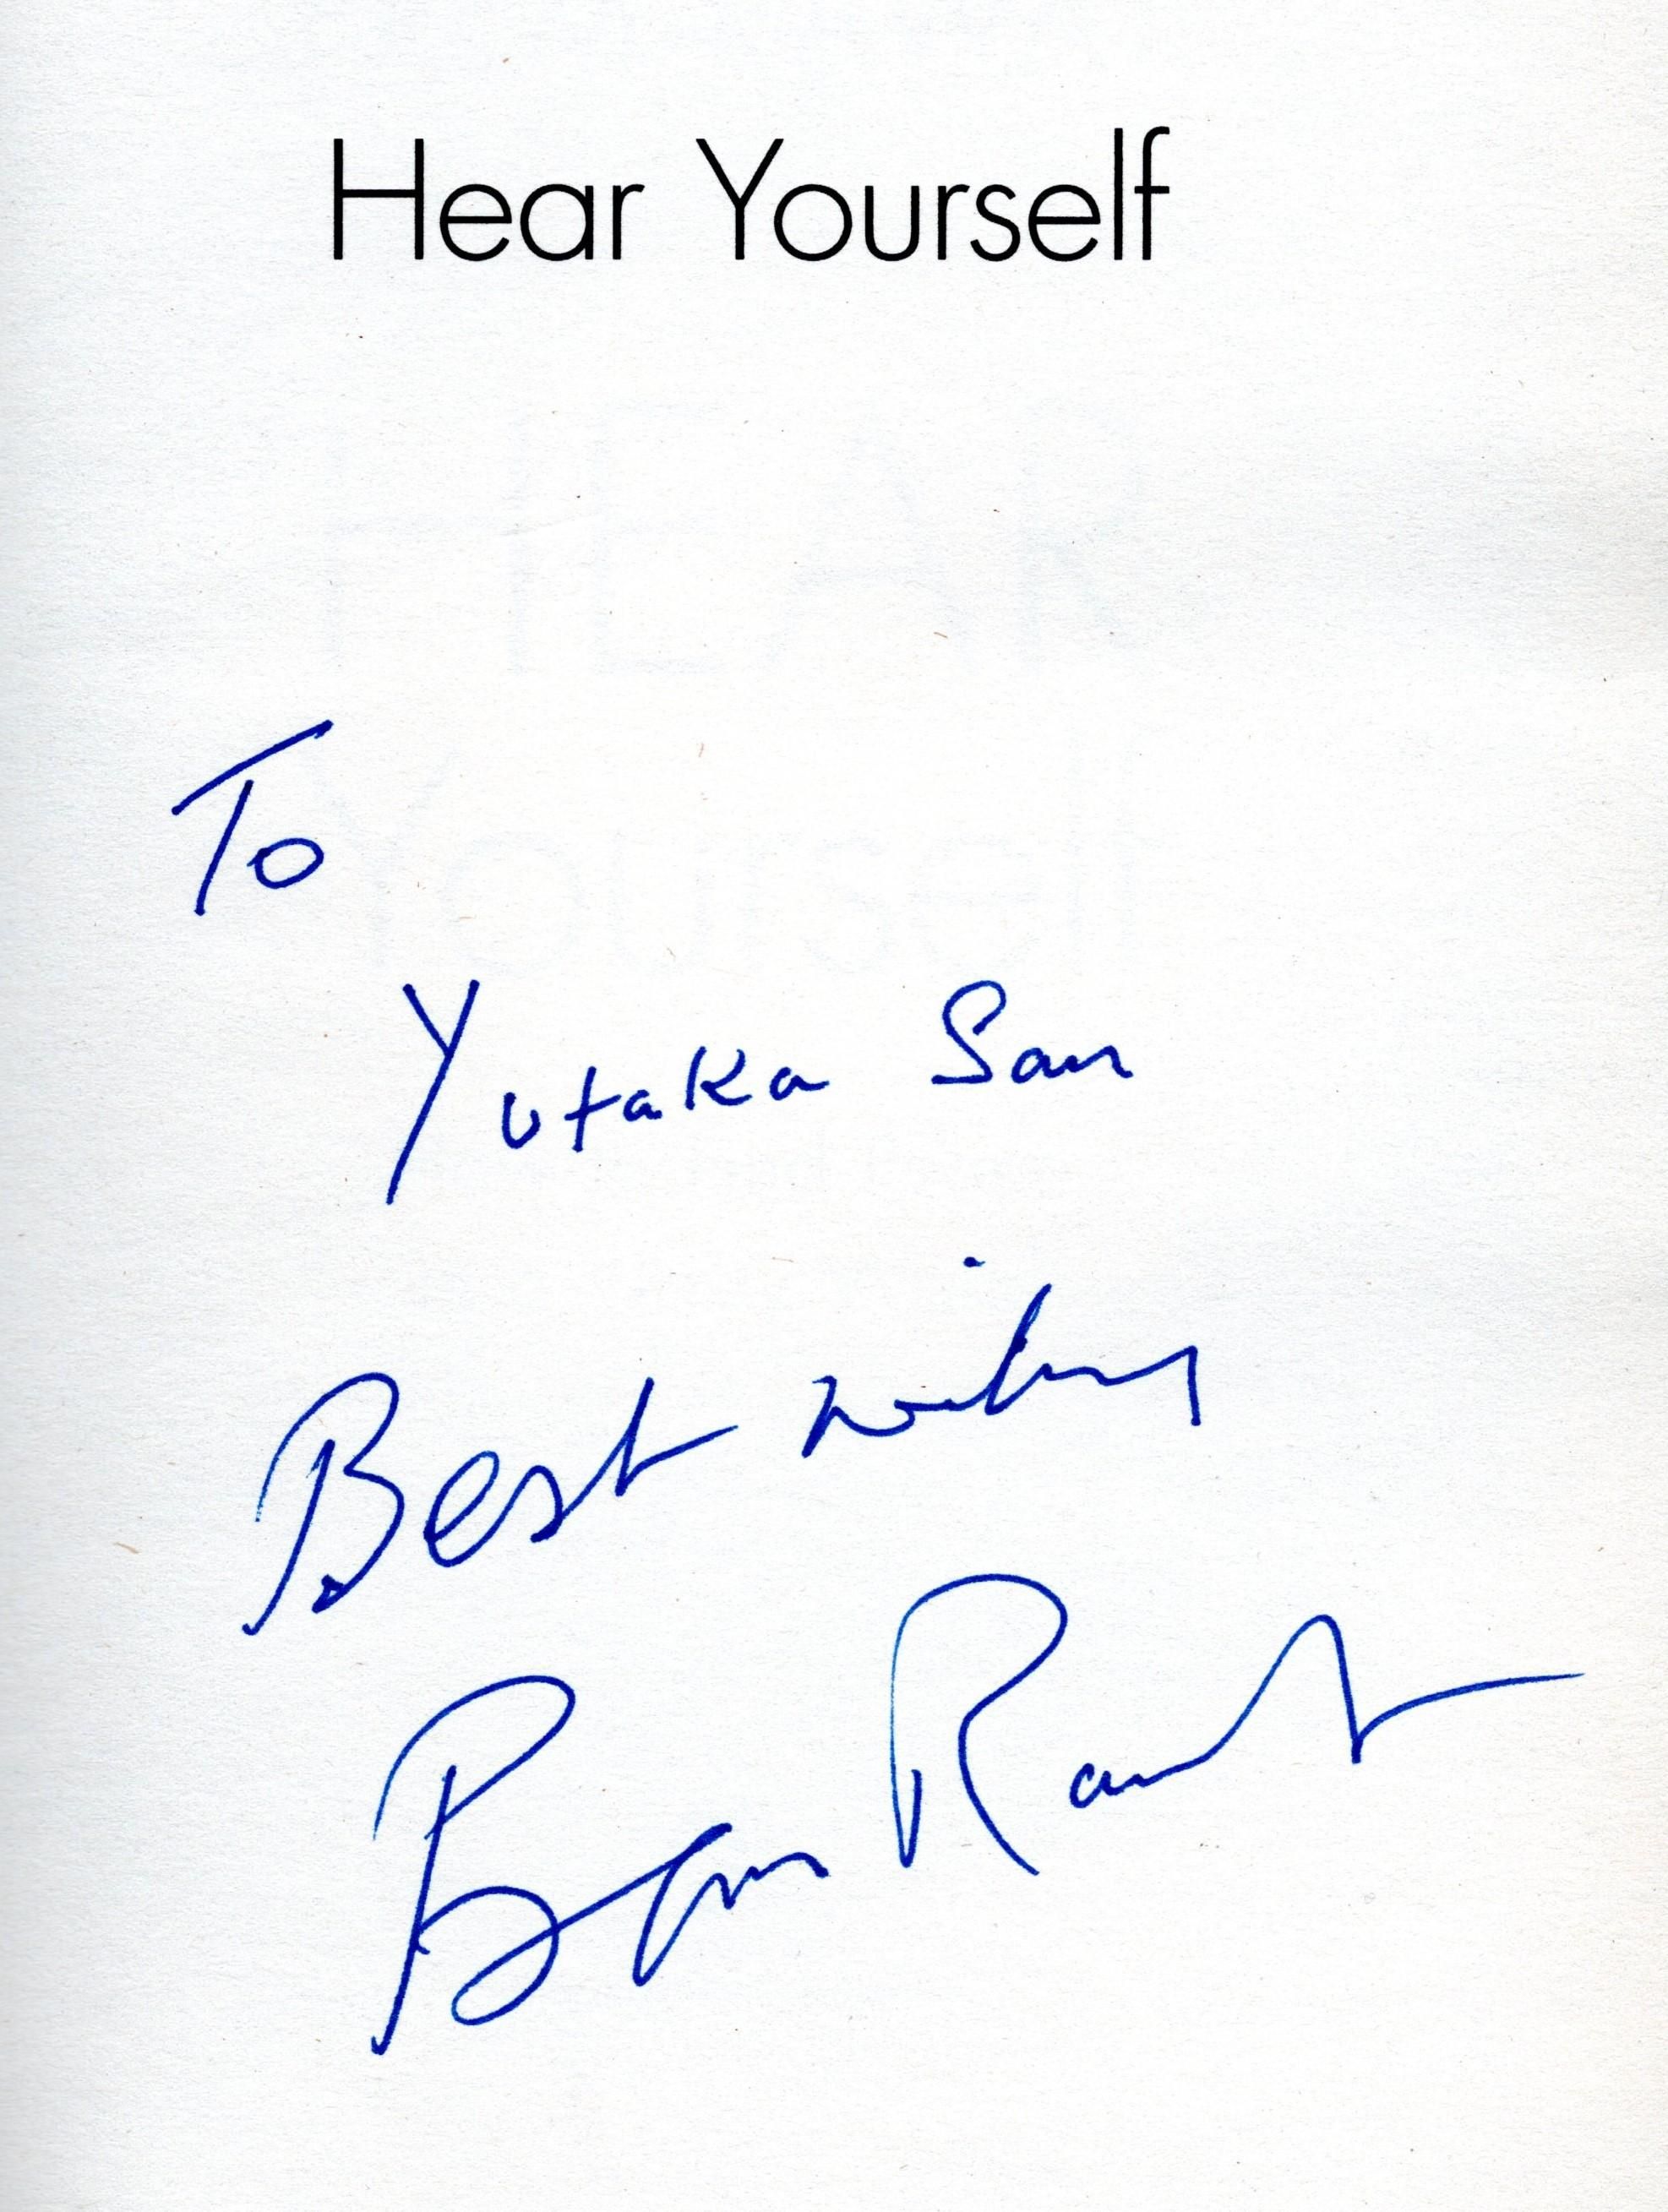 Hear Yourself
To
Yutaka San
Best wishes